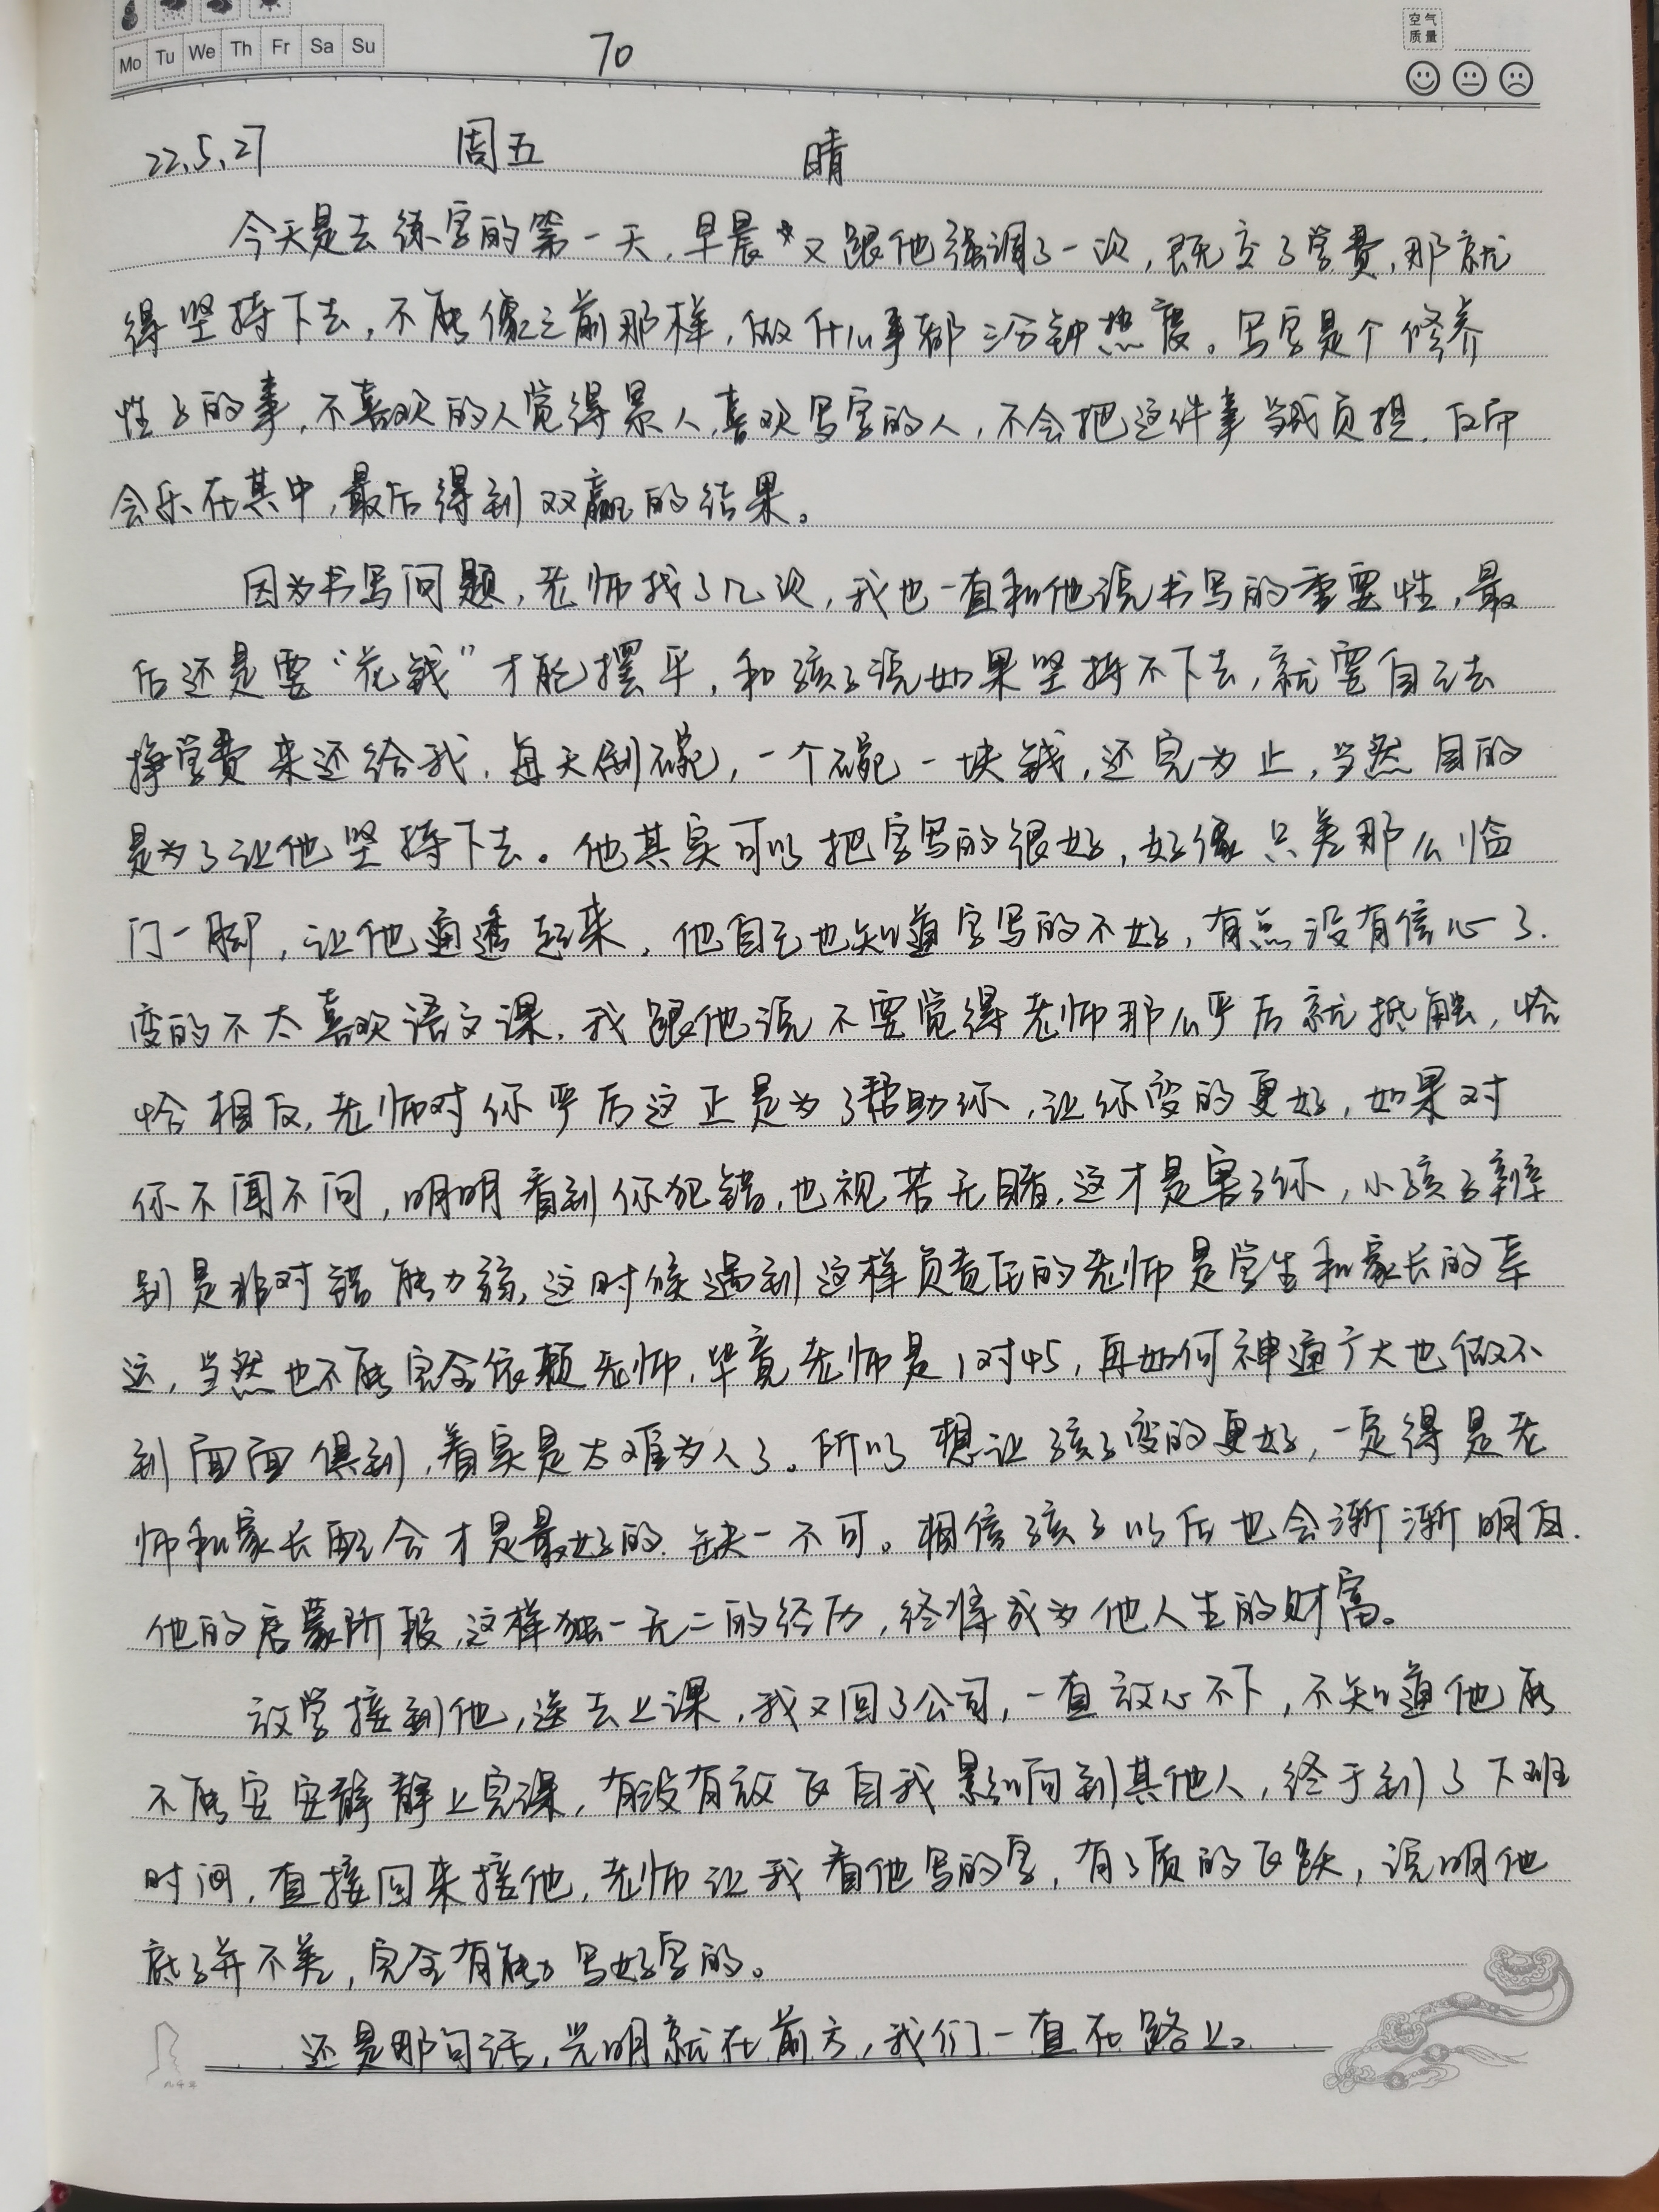 空气
质量
Mo Tu We Th Fr Sa Su
70
22.5.27 周五 晴
今天是去练字的第一天,早晨又跟他强调了一次,既交了学费,那就
得坚持下去,不能像之前那样,做什么事都三分钟热度。写字是个修养
性子的事,不喜欢的人觉得累人,喜欢写字的人,不会把这件事当成负担,反而
会乐在其中,最后得到双赢的结果。
因为书写问题,老师找了几次,我也一直和他说书写的重要性,最
后还是要“花钱”才能摆平,和孩子说如果坚持不下去,就要自己去
挣学费来还给我,每天刷碗,一个碗一块钱,还完为止,当然目的
是为了让他坚持下去。他其实可以把字写的很好,好像只差那么临
门一脚,让他通透起来,他自己也知道字写的不好,有点没有信心了.
变的不太喜欢语文课,我跟他说不要觉得老师那么严厉就抵触,恰
恰相反,老师对你严厉这正是为了帮助你,让你变的更好,如果对
你不闻不问,明明看到你犯错,也视若无睹,这才是害了你,小孩子辨
别是非对错能力弱,这时候遇到这样负责任的老师是学生和家长的幸
运,当然也不能完全依赖老师,毕竟老师是1对45,再如何神通广大也做不
到面面俱到,着实是太难为人了。所以想让孩子变的更好,一定得是老
师和家长配合才是最好的,缺一不可。相信孩子以后也会渐渐明白.
他的启蒙阶段,这样独一无二的经历,终将成为他人生的财富。
放学接到他,送去上课,我又回了公司,一直放心不下,不知道他能
不能安安静静上完课,有没有放飞自我影响到其他人,终于到了下班
时间,直接回来接他,老师让我看他写的字,有了质的飞跃,说明他
底子并不差,完全有能力写好字的。
还是那句话,光明就在前方,我们一直在路上。